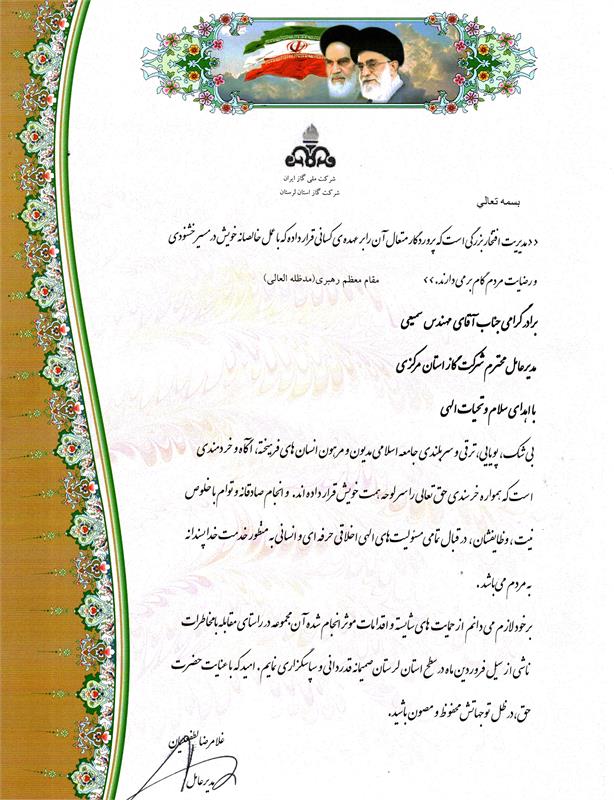 شرکت ملی گاز ایران
شرکت گاز استان لرستان
بسمه تعالی
«مدیریت افتخار بزرگی است که پروردگار متعال آن را بر عهده ی کسانی قرار داده که با عمل خالصانه خویش در مسیر خشنودی
و رضایت مردم گام بر می دارند.» مقام معظم رهبری(مدظله العالی)
برادر گرامی جناب آقای مهندس سمیعی
مدیرعامل محترم شرکت گاز استان مرکزی
با اهدای سلام و تحیات الهی
بی شک، پویایی، ترقی و سربلندی جامعه اسلامی مدیون و مرهون انسان های فریخته، آگاه و خردمندی
است که همواره خرسندی حق تعالی را سرلوحه همت خویش قرار داده اند. و انجام صادقانه و توام با خلوص
نیت، وظایفشان، در قبال تمامی مسئولیت های الهی اخلاقی حرفه ای و انسانی به منظور خدمت خداپسندانه
به مردم می باشد.
بر خود لازم می دانم از حمایت های شایسته و اقدامات موثر انجام شده آن مجموعه در راستای مقابله با مخاطرات
ناشی از سیل فروردین ماه در سطح استان لرستان صمیمانه قدردانی و سپاسگزاری نمایم. امید که با عنایت حضرت
حق، در ظل توجهاتش محفوظ و مصون باشید.
غلامرضا
مدیرعامل